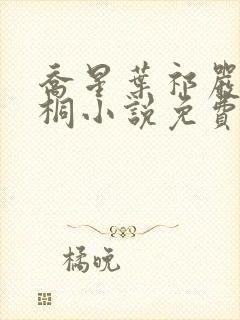 喬星葉祁嚴
桐小說免費
橘晚